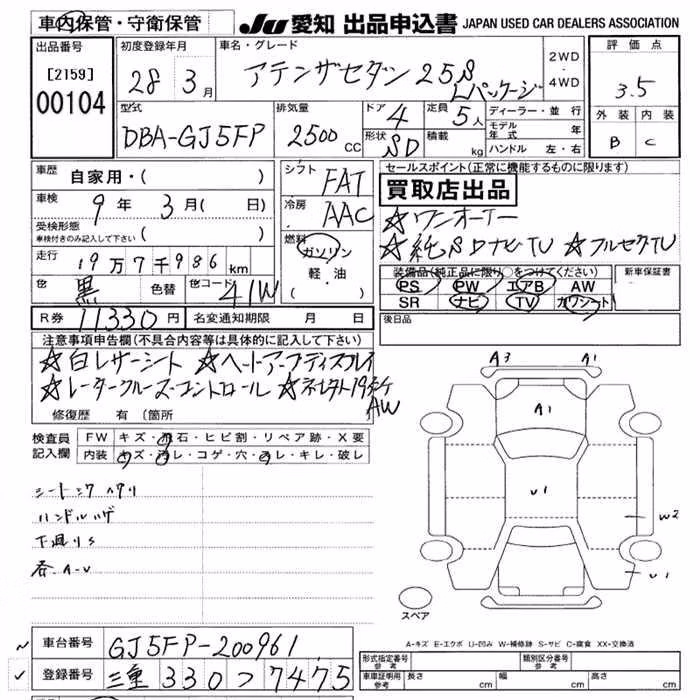 車内保管・守衛保管 JU 愛知 出品申込書 JAPAN USED CAR DEALERS ASSOCIATION
出品番号 初度登録年月 車名・グレード 2WD ・ 4WD 評価点
[2159] 28 3月 アテンザセダン 25S Lパッケージ 3.5
00104
型式 排気量 ドア 4 定員 5人 ディーラー・並行 外装 内装
DBA-GJ5FP 2500cc 形状 SD 積載 kg モデル年式 年 B C
ハンドル 左・右
車歴 自家用・( ) シフト FAT セールスポイント(正常に機能するものに限ります)
車検 9年 3月( 日) 冷房 AAC 買取店出品
受検形態 ( ) ☆ワンオーナー
車検付きのみ記入して下さい
燃料 ガソリン 軽・油 ・( ) ☆純SDナビTV ☆フルセグTV
走行 19万7千986km
装備品(純正品に限り○をつけてください) 新車保証書
色 黒 色替 色コード 41W PS PW エアB AW
SR ナビ TV カワシート
R券 11330円 名変通知期限 月 日 後日品
注意事項申告欄(不具合内容等は具体的に記入して下さい)
☆白レザーシート ☆ヘッドアップディスプレイ
☆レーダークルーズコントロール
AW
修復歴 有 (箇所
検査員記入欄 FW キズ・飛石・ヒビ割・リペア跡・X要
内装 キズ・汚レ・コゲ・穴・スレ・キレ・破レ
A3 A1
A1
U1
W2
U1
ハンドルハゲ
下廻りS
各A-U
スペア
A-キズ E-エクボ U-凹み W-補修跡 S-サビ C-腐食 XX-交換済
車台番号 GJ5FP-200961
登録番号 三重 330 つ 7475
形式指定番号 参考 類別区分番号 参考
車庫証明用 参考 長さ cm 幅 cm 高さ cm